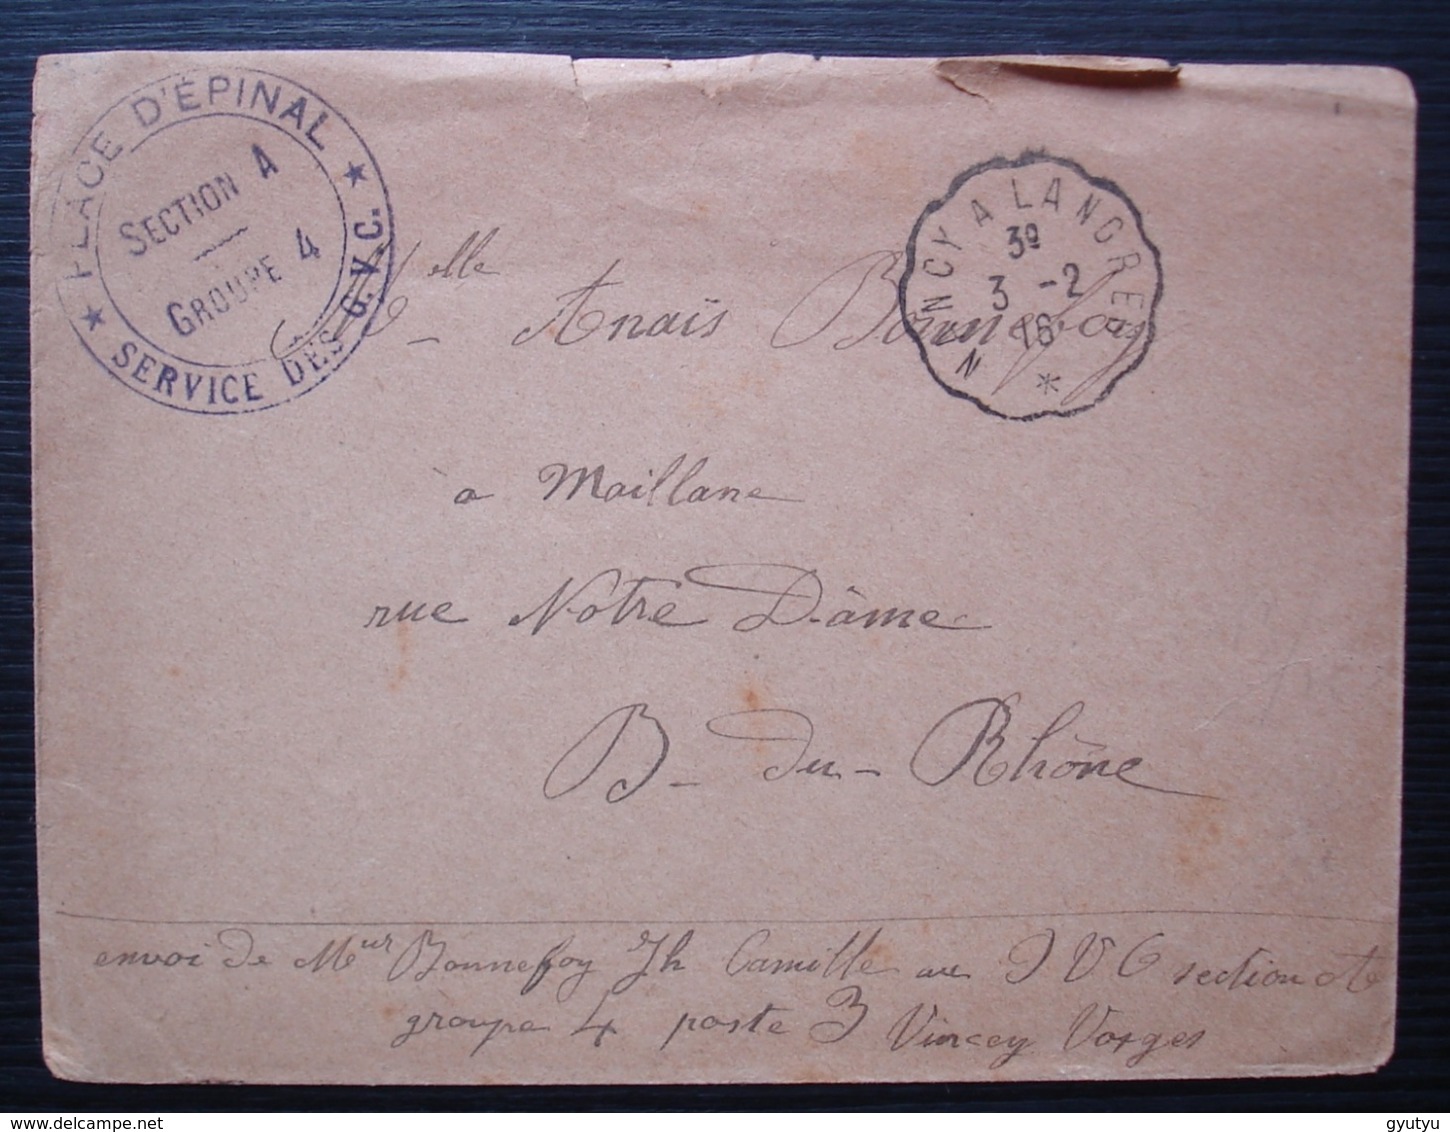 ★ PLACE D'ÉPINAL ★
SECTION A
GROUPE 4
SERVICE DES G.V.C.
NANCY A LANGRES
3º
3 -2
16
*
Melle Anaïs Bonnefoy
à Maillane
rue Notre Dâme
B- du- Rhône
envoi de Meur Bonnefoy Jh Camille au G V C section A
groupe 4 poste 3 Vincey Vosges
delcampe.net
gyutyu